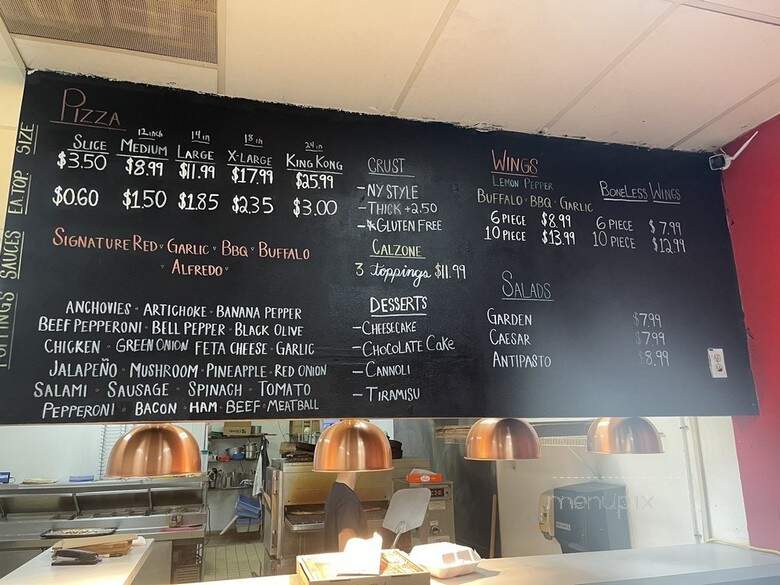 PIZZA
SIZE
12 inch 14 in 18 in 24 in
SLICE MEDIUM LARGE X-LARGE KING KONG
$3.50 $8.99 $11.99 $17.99 $25.99
EA.TOP
$0.60 $1.50 $1.85 $2.35 $3.00
SAUCES
SIGNATURE RED GARLIC BBQ BUFFALO
ALFREDO
TOPPINGS
ANCHOVIES - ARTICHOKE - BANANA PEPPER
BEEF PEPPERONI - BELL PEPPER - BLACK OLIVE
CHICKEN - GREEN ONION FETA CHEESE - GARLIC
JALAPEÑO - MUSHROOM - PINEAPPLE - RED ONION
SALAMI - SAUSAGE - SPINACH - TOMATO
PEPPERONI - BACON - HAM - BEEF - MEATBALL
CRUST
- NY STYLE
- THICK +2.50
- *GLUTEN FREE
CALZONE
3 toppings $11.99
DESSERTS
- CHEESECAKE
- CHOCOLATE CAKE
- CANNOLI
- TIRAMISU
WINGS
LEMON PEPPER
BUFFALO - BBQ - GARLIC
6 PIECE $8.99
10 PIECE $13.99
BONELESS WINGS
6 PIECE $7.99
10 PIECE $12.99
SALADS
GARDEN $7.99
CAESAR $7.99
ANTIPASTO $8.99
menupix